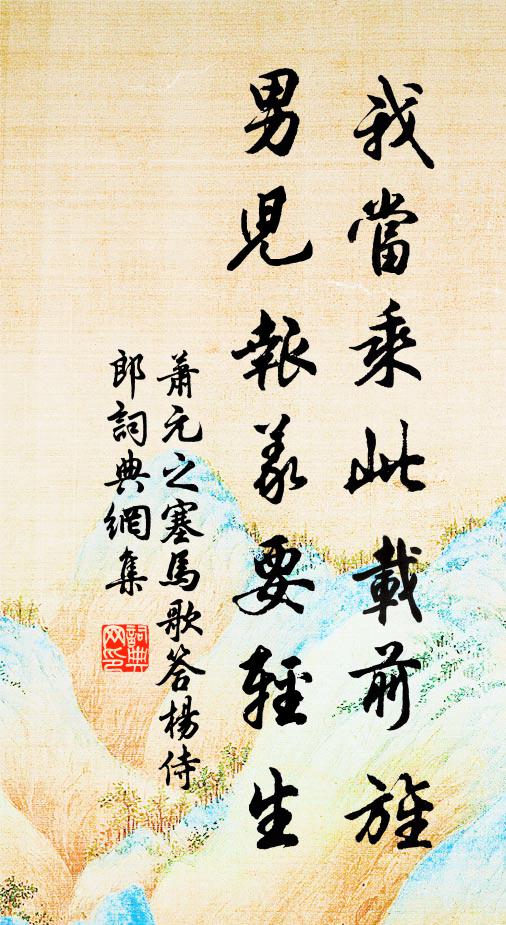 我當乘此載前旌
男兒報義要輕生
蕭元之塞馬歌答楊侍
郎詞典網集
詞典